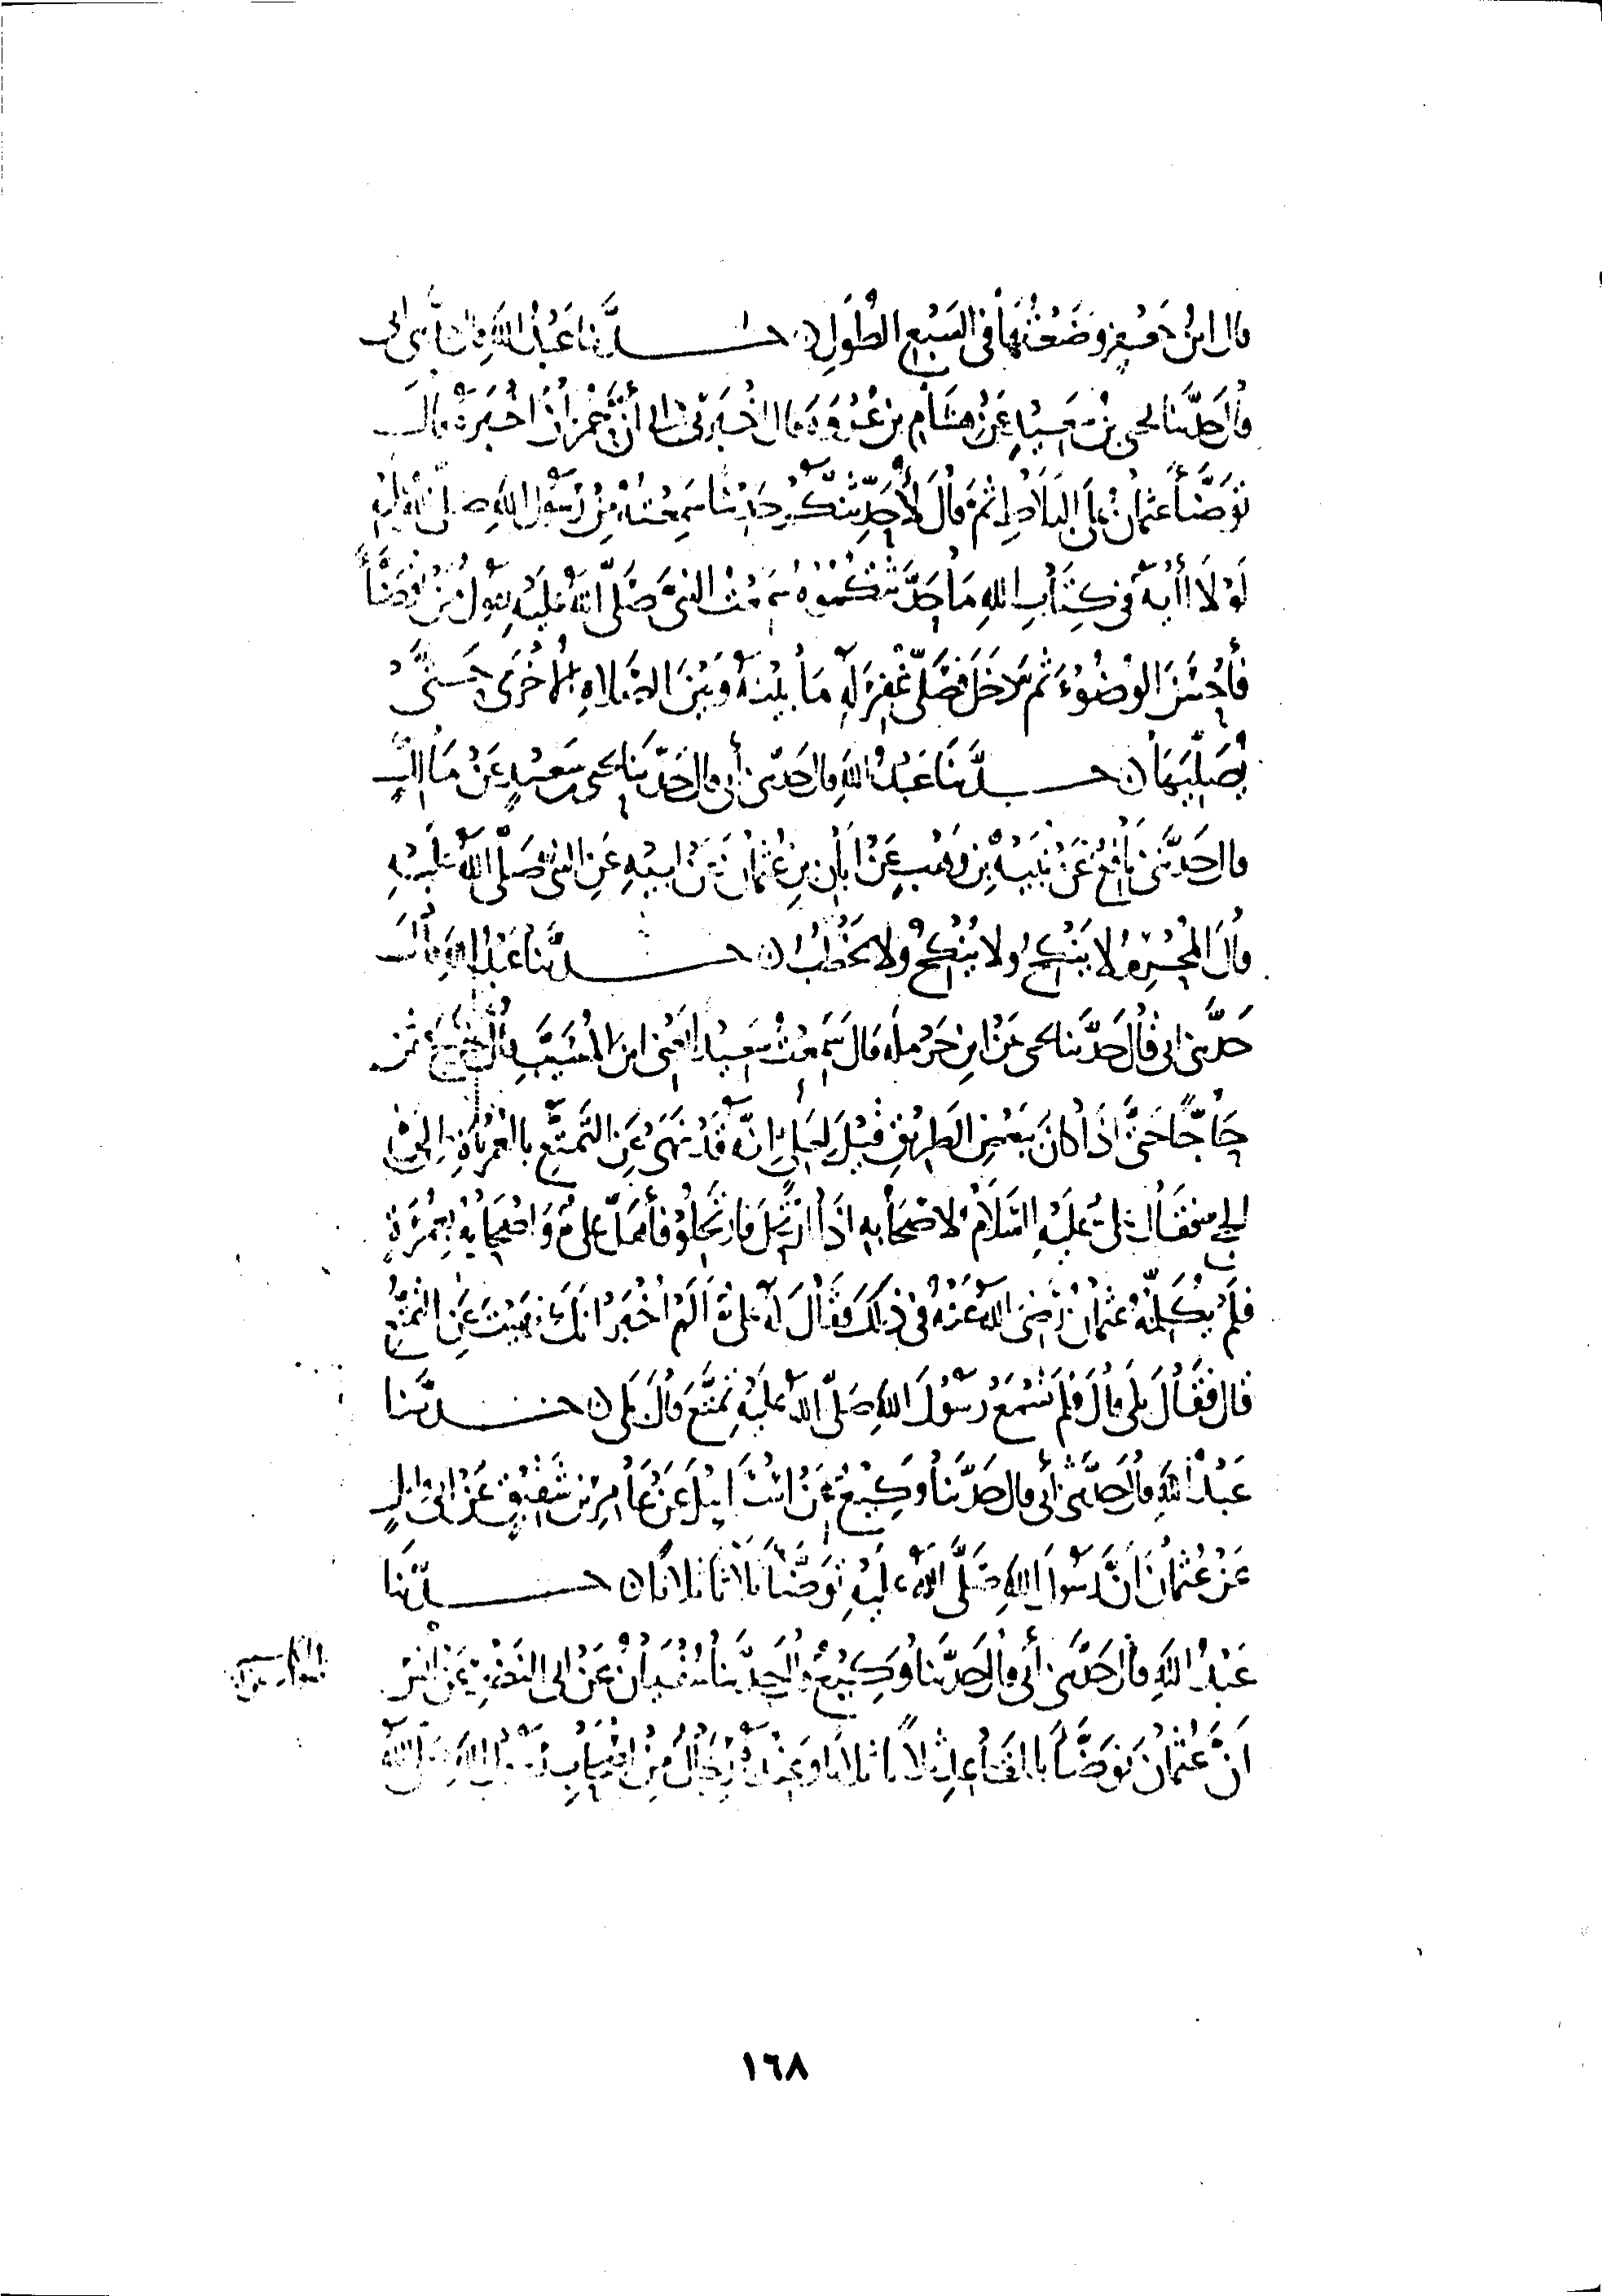 قال ابن جعفر وَضَعْتُهَا في السَبْع الطُّوَلِ ن حـــدَّثنا عَبْدُ اللهِ قال حدَّثني ابى
قال حدَّثنا يحيى بنُ سَعِيدٍ عَن هِشَامِ بن عُرْوَةَ قال اخْبَرَنى ابى أنَّ حُمْرَانَ اخْبَرَهُ قال
تَوَضَّأَ عثمانُ على البَلَاطِ ثمَّ قالَ لأُحَدِّثَنَّكُم حَدِيثًا سَمِعْتُهُ مِنْ رَسُولِ اللهِ صلى الله عليه
لَوْلَا أيةٌ فى كِتَابِ اللهِ مَا حَدَّثْتُكُمُوهُ سَمِعْتُ النبىَّ صَلَّى اللهُ عَلَيْهِ يَقُولُ مَنْ تَوَضَّأَ
فَأَحْسَنَ الوُضُوءَ ثم دَخَلَ فَصَلَّى غُفِرَ لَهُ مَا بَيْنَهُ وَبَيْنَ الصَّلاةِ الأُخْرَى حَتَّى
يُصَلِّيَهَا ن حـــدَّثنَا عَبْدُ اللهِ قال حَدَّثنى أبى قال حَدَّثنَا يحيى بن سَعِيدٍ عَنْ مَالكٍ
قال حَدَّثَنى نَافِعٌ عَنْ نُبَيْهِ بْنِ وَهْبٍ عَنْ أبَانِ بن عُثْمَانَ عَنْ ابيهِ عَنِ النبى صَلَّى اللهُ عَلَيْهِ
قالَ المُحْرِمُ لا يَنْكِحُ ولا يُنْكِحُ ولا يَخْطُبُ ن حـــدَّثنا عَبْدُ اللهِ قالَ
حَدَّثنى ابى قال حَدَّثَنا يحيى عَن ابنِ حَرْمَلَة قال سَمِعْتُ سَعِيدًا يَعْنى ابنَ المُسَيَّبِ قال خَرَجَ عثمن
حَاجًّا حَتَّى اذَا كانَ بِبَعْضِ الطَرِيقِ قِيلَ لِعَلىٍّ انَّهُ قَدْ نَهَى عَنِ التَّمَتُّعِ بالعُمْرَةِ الى
الحج فقَالَ علىٌّ عَلَيْهِ السَّلَامُ لاصْحَابِهِ اذَا ارْتَحَلَ فارتَحِلُوا فأَهَلَّ علىٌّ وَاصْحَابُهُ بِعُمْرَةٍ
فلَمْ يُكَلِّمْهُ عثمانُ رَضِىَ اللهُ عَنْهُ فى ذلِكَ فقَالَ لَهُ علىٌّ أَلَمْ أُخْبَرْ انَّكَ نَهَيْتَ عَنِ التَّمَتُّعِ
قال فقَالَ بَلَى قال فلَمْ تَسْمَعْ رَسُولَ اللهِ صَلَّى اللهُ عَلَيْهِ تَمَتَّعَ قالَ بَلَى ن حـــدَّثنا
عَبْدُ اللهِ قال حَدَّثنى أبى قال حَدَّثَنَا وَكِيْعٌ عَن اسْرَائِيْلَ عَنْ عَامِرِ بْنِ شَقِيْقٍ عَنْ ابى وائلٍ
عَنْ عُثمَانَ انَّ رَسُولَ اللهِ صَلَّى اللهُ عَلَيْهِ تَوَضَّأَ ثَلَاثًا ثَلاثًا ن حـــدَّثَنَا
عَبْدُ اللهِ قال حَدَّثنى أبى قال حَدَّثَنَا وَكِيْعٌ قال حَدَّثنا سُفْيَانُ عَنْ ابى النَضْرِ عَنْ انس
انَّ عُثْمَانَ تَوَضَّأَ بالمَقَاعِدِ ثلَاثًا ثلاثًا وَعِنْدَهُ رِجَالٌ مِنْ اصْحَابِ رَسُولِ اللهِ صلى الله
١٦٨